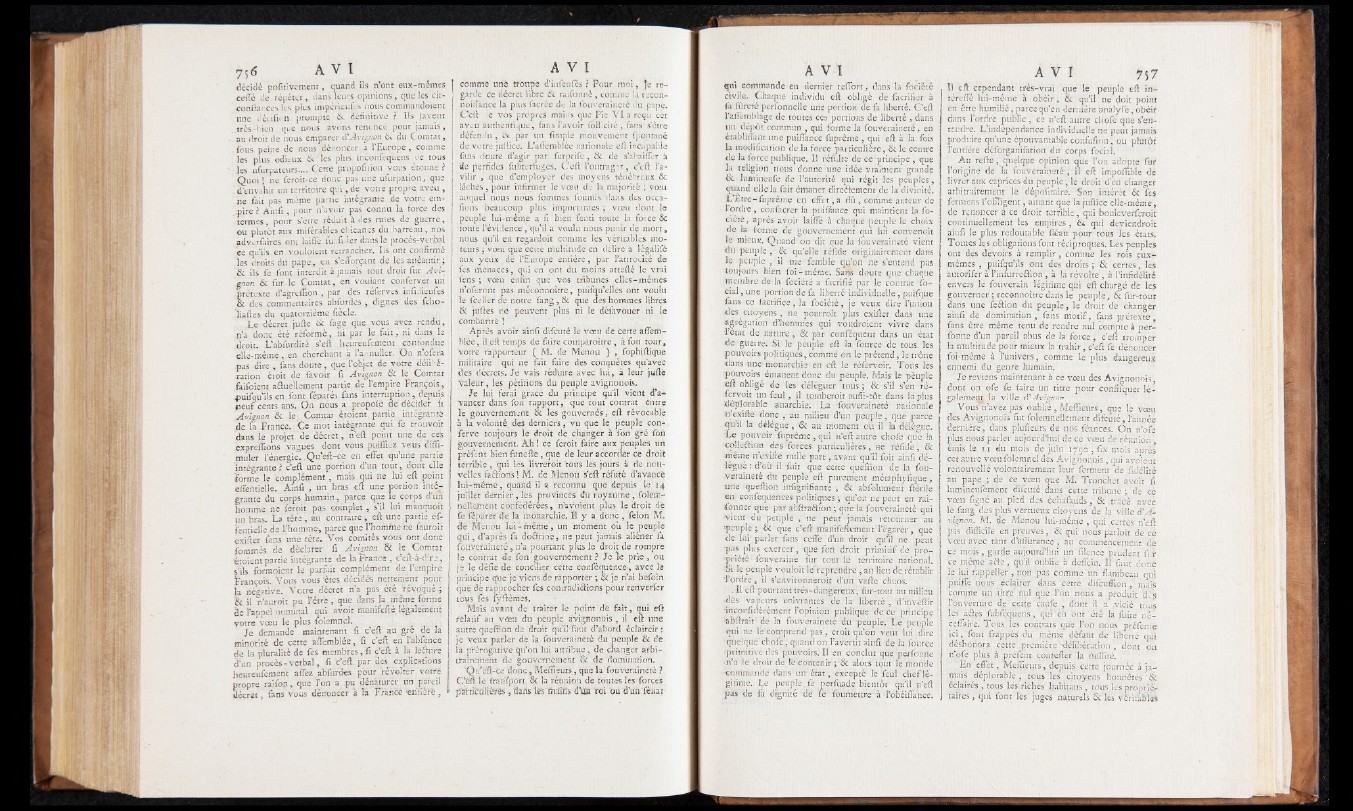 756 A V I
décidé poſitivement, quand ils n'ont eux-mêmes
ceſſé de répéter, dans leurs opinions, que les cir-
conſtances les plus impérieuſes nous commandoient
une déciſion prompte & définitive ? Ils ſavent
très-bien que nous avons renoncé pour jamais,
au droit de nous emparer d'Avignon & du Comtat,
ſous peine de nous dénoncer à l'Europe, comme
les plus odieux & les plus inconſéquens de tous
les uſurpateurs.... Cette propoſition vous étonne ?
Quoi ! ne ſeroit-ce donc pas une uſurpation, que
d'envahir un territoire qui, de votre propre aveu,
ne fait pas même partie intégrante de votre em-
pire ? Ainſi, pour n'avoir pas connu la force des
termes, pour s'être réduit à des ruſes de guerre,
ou plutôt aux miſérables chicanes du barreau, nos
adverſaires ont laiſſé ſubſiſter dans le procès-verbal
ce qu'ils en vouloient retrancher. Ils ont confirmé
les droits du pape, en s'efforçant de les anéantir ;
& ils ſe ſont interdit à jamais tout droit ſur Avi-
gnon & ſur le Comtat, en voulant conſerver un
prétexte d'agreſſion, par des réſerves inſidieuſes
& des commentaires abſurdes, dignes des ſcho-
liaſtes du quatorzième ſiècle.
Le décret juſte & ſage que vous avez rendu,
n'a donc été réformé, ni par le fait, ni dans le
droit. L'abſurdité s'eſt heureuſement confondue
elle-même, en cherchant à l'annuller. On n'oſera
pas dire, ſans doute, que l'objet de votre délibé-
ration étoit de ſavoir ſi Avignon & le Comtat
faiſoient actuellement partie de l'empire François,
puiſqu'ils en ſont ſéparés ſans interruption, depuis
neuf cents ans. On nous a propoſé de décider ſi
Avignon & le Comtat étoient partie intégrante
de la France. Ce mot intégrante qui ſe trouvoit
dans le projet de décret, n'eſt point une de ces
expreſſions vagues dont vous puiſſiez vous diſſi-
muler l'énergie. Qu'eſt-ce en effet qu'une partie
intégrante ? c'eſt une portion d'un tout, dont elle
forme le complément, mais qui ne lui eſt point
eſſentielle. Ainſi, un bras eſt une portion inté-
grante du corps humain, parce que le corps d'un
homme ne ſeroit pas complet, s'il lui manquoit
un bras. La tête, au contraire, eſt une partie eſ-
ſentielle de l'homme, parce que l'homme ne ſauroit
exiſter ſans une tête. Vos comités vous ont donc
ſommés de déclarer ſi Avignon & le Comtat
étoient partie intégrante de la France, c'eſt-à-dire,
s'ils formoient le parfait complément de l'empire
François. Vous vous êtes décidés nettement pour
la négative. Votre décret n'a pas été révoqué ;
& il n'auroit pu l'être, que dans la même forme
de l'appel nominal qui avoit manifeſté légalement
votre vœu le plus ſolemnel.
Je demande maintenant ſi c'eſt au gré de la
minorité de cette aſſemblée, ſi c'eſt en l'abſence
de la pluralité de ſes membres, ſi c'eſt à la lecture
d'un procès-verbal, ſi c'eſt par des explications
heureuſement aſſez abſurdes pour révolter votre
propre raiſon, que l'on a pu dénaturer un pareil
décret, ſans vous dénoncer à la France entière,
A V I
comme une troupe d'inſenſés ? Pour moi, je re-
garde ce décret libre & raiſonné, comme la recon-
noiſſance la plus ſacrée de la ſouveraineté du pape.
C'eſt de vos propres mains que Pie VI a reçu cet
aveu authentique, ſans l'avoir ſollicité, ſans s'être
défendu, & par un ſimple mouvement ſpontané
de votre juſtice. L'aſſemblée nationale eſt incapable
ſans doute d'agir par ſurpriſe, & de s'abaiſſer à
de perfides ſubterfuges. C'eſt l'outrager, c'eſt l'a-
vilir, que d'employer des moyens ténébreux &
lâches, pour infirmer le vœu de la majorité ; vœu
auquel nous nous ſommes ſoumis dans des occa-
ſions beaucoup plus importantes ; vœu dont le
peuple lui-même a ſi bien ſenti toute la force &
toute l'évidence, qu'il a voulu nous punir de mort,
nous qu'il en regardoit comme les véritables mo-
teurs ; vœu que cette multitude en délire a légaliſé
aux yeux de l'Europe entière, par l'atrocité de
ſes menaces, qui en ont du moins atteſté le vrai
ſens ; vœu enfin que vos tribunes elles-mêmes
n'oſeront pas méconnoître, puiſqu'elles ont voulu
le ſceller de notre ſang, & que des hommes libres
& juſtes ne peuvent plus ni le déſavouer ni le
combattre !
Après avoir ainſi diſcuté le vœu de cette aſſem-
blée, il eſt temps de faire comparoître, à ſon tour,
votre rapporteur ( M. de Menou ), ſophiſtique
militaire qui ne ſait faire des conquêtes qu'avec
des décrets. Je vais réduire avec lui, à leur juſte
valeur, les pétitions du peuple avignonois.
Je lui ſerai grace du principe qu'il vient d'a-
vancer dans ſon rapport, que tout contrat entre
le gouvernement & les gouvernés, eſt révocable
à la volonté des derniers, vu que le peuple con-
ſerve toujours le droit de changer à ſon gré ſon
gouvernement. Ah ! ce ſeroit faire aux peuples un
préſent bien funeſte, que de leur accorder ce droit
terrible, qui les livreroit tous les jours à de nou-
velles factions ! M. de Menou s'eſt réfuté d'avance
lui-même, quand il a reconnu que depuis le 14
juillet dernier, les provinces du royaume, ſolem-
nellement confédérées, n'avoient plus le droit de
ſe ſéparer de la monarchie. Il y a donc, ſelon M.
de Menou lui-même, un moment où le peuple
qui, d'après ſa doctrine, ne peut jamais aliéner ſa
ſouveraineté, n'a pourtant plus le droit de rompre
le contrat de ſon gouvernement ? Je le prie, ou
je le défie de concilier cette conſéquence, avec le
principe que je viens de rapporter ; & je n'ai beſoin
que de rapprocher ſes contradictions pour renverſer
tous ſes ſyſtèmes.
Mais avant de traiter le point de fait, qui eſt
relatif au vœu du peuple avignonois, il eſt une
autre queſtion de droit qu'il faut d'abord éclaircir :
je veux parler de la ſouveraineté du peuple & de
la prérogative qu'on lui attribue, de changer arbi-
trairement de gouvernement & de domination.
Qu'eſt-ce donc, Meſſieurs, que la ſouveraineté ?
C'eſt le tranſport & la réunion de toutes les forces
particulières, dans les mains d'un roi ou d'un ſénat
A V I
qui commande en dernier reſſort, dans la ſociété
civile. Chaque individu eſt obligé de ſacrifier à
ſa ſûreté perſonnelle une portion de ſa liberté. C'eſt
l'aſſemblage de toutes ces portions de liberté, dans
un dépôt commun, qui forme la ſouveraineté, en
établiſſant une puiſſance ſuprême, qui eſt à la fois
la modification de la force particulière, & le centre
de la force publique. Il réſulte de ce principe, que
la religion nous donne une idée vraiment grande
& lumineuſe de l'autorité qui régit les peuples,
quand elle la fait émaner directement de la divinité.
L'Être-ſuprême en effet, a dû, comme auteur de
l'ordre, conſacrer la puiſſance qui maintient la ſo-
ciété, après avoir laiſſé à chaque peuple le choix
de la forme de gouvernement qui lui convenoit
le mieux. Quand on dit que la ſouveraineté vient
du peuple, & qu'elle réſide originairement dans
le peuple, il me ſemble qu'on ne s'entend pas
toujours bien ſoi-même. Sans doute que chaque
membre de la ſociété a ſacrifié par le contrat ſo-
cial, une portion de ſa liberté individuelle, puiſque
ſans ce ſacrifice, la ſociété, je veux dire l'union
des citoyens, ne pourroit plus exiſter dans une
agrégation d'hommes qui voudroient vivre dans
l'état de nature, & par conſéquent dans un état
de guerre. Si le peuple eſt la ſource de tous les
pouvoirs politiques, comme on le prétend, le trône
dans une monarchie en eſt le réſervoir. Tous les
pouvoirs émanent donc du peuple. Mais le peuple
eſt obligé de les déléguer tous ; & s'il s'en ré-
ſervoit un ſeul, il tomberoit auſſi-tôt dans la plus
déplorable anarchie. La ſouveraineté nationale
n'exiſte donc, au milieu d'un peuple, que parce
qu'il la délègue, & au moment où il la délègue.
Le pouvoir ſuprême, qui n'eſt autre choſe que la
collection des forces particulières, ne réſide, &
même n'exiſte nulle part, avant qu'il ſoit ainſi dé-
légué : d'où il ſuit que cette queſtion de la ſou-
veraineté du peuple eſt purement métaphyſique,
une queſtion inſignifiante, & abſolument ſtérile
en conſéquences politiques ; qu'on ne peut en rai-
ſonner que par abſtraction ; que la ſouveraineté qui
vient du peuple, ne peut jamais retourner au
peuple ; & que c'eſt manifeſtement l'égarer, que
de lui parler ſans ceſſe d'un droit qu'il ne peut
pas plus exercer, que ſon droit primitif de pro-
priété ſouveraine ſur tout le territoire national.
Si le peuple vouloit le reprendre, au lieu de rétablir
l'ordre, il s'environneroit d'un vaſte chaos.
Il eſt pourtant très-dangereux, ſur-tout au milieu
des vapeurs enivrantes de la liberté, d'inveſtir
inconſidérément l'opinion publique de ce principe
abſtrait de la ſouveraineté du peuple. Le peuple
qui ne le comprend pas, croit qu'on veut lui dire
quelque choſe, quand on l'avertit ainſi de la ſource
primitive des pouvoirs. Il en conclut que perſonne
n'a le droit de le contenir ; & alors tout le monde
commande dans un état, excepté le ſeul chef lé-
gitime. Le peuple ſe perſuade bientôt qu'il n'eſt
pas de ſa dignité de ſe ſoumettre à l'obéiſſance.
A V I 757
Il eſt cependant très-vrai que le peuple eſt in-
téreſſé lui-même à obéir, & qu'il ne doit point
en être humilié, parce qu'en dernière analyſe, obéir
dans l'ordre public, ce n'eſt autre choſe que s'en-
tendre. L'indépendance individuelle ne peut jamais
produire qu'une épouvantable confuſion, ou plutôt
l'entière déſorganiſation du corps ſocial.
Au reſte, quelque opinion que l'on adopte ſur
l'origine de la ſouveraineté, il eſt impoſſible de
livrer aux caprices du peuple, le droit d'en changer
arbitrairement le dépoſitaire. Son intérêt & ſes
ſermens l'obligent, autant que la juſtice elle-même,
de renoncer à ce droit terrible, qui bouleverſeroit
continuellement les empires, & qui deviendroit
ainſi le plus redoutable fléau pour tous les états.
Toutes les obligations ſont réciproques. Les peuples
ont des devoirs à remplir, comme les rois eux-
mêmes, puiſqu'ils ont des droits ; & certes, les
autoriſer à l'inſurrection, à la révolte, à l'infidélité
envers le ſouverain légitime qui eſt chargé de les
gouverner ; reconnoître dans le peuple, & ſur-tout
dans une ſection du peuple, le droit de changer
ainſi de domination, ſans motif, ſans prétexte,
ſans être même tenu de rendre nul compte à per-
ſonne d'un pareil abus de la force, c'eſt tromper
la multitude pour mieux la trahir, c'eſt ſe dénoncer
ſoi-même à l'univers, comme le plus dangereux
ennemi du genre humain.
Je reviens maintenant à ce vœu des Avignonois,
dont on oſe ſe faire un titre pour confiſquer lé-
galement la ville d'Avignon.
Vous n'avez pas oublié, Meſſieurs, que le vœu
des Avignonois fut ſolemnellement diſcuté, l'année
dernière, dans pluſieurs de nos ſéances. On n'oſe
plus nous parler aujourd'hui de ce vœu de réunion,
émis le 11 du mois de juin 1790, ſix mois après
cet autre vœu ſolemnel des Avignonois, qui avoient
renouvellé volontairement leur ſerment de fidélité
au pape ; de ce vœu que M. Tronchet avoit ſi
lumineuſement diſcuté dans cette tribune ; de ce
vœu ſigné au pied des échafauds, & tracé avec
le ſang des plus vertueux citoyens de la ville d'A-
vignon. M. de Menou lui-même, qui certes n'eſt
pas difficile en preuves, & qui nous parloit de ce
vœu avec tant d'aſſurance, au commencement de
ce mois, garde aujourd'hui un ſilence prudent ſur
ce même acte, qu'il oublie à deſſein. Il faut donc
le lui rappeller, non pas comme un flambeau qui
puiſſe nous éclairer dans cette diſcuſſion, mais
comme un titre nul que l'on nous a produit dès
l'ouverture de cette cauſe, dont il a vicié tous
les actes ſubſéquens, qui en ont été la ſuite né-
ceſſaire. Tous les contrats que l'on nous préſente
ici, ſont frappés du même défaut de liberté qui
déshonora cette première délibération, dont on
n'oſe plus à préſent conteſter la nullité.
En effet, Meſſieurs, depuis cette journée à ja-
mais déplorable, tous les citoyens honnêtes &
éclairés, tous les riches habitans, tous les proprié-
taires, qui ſont les juges naturels & les véritables